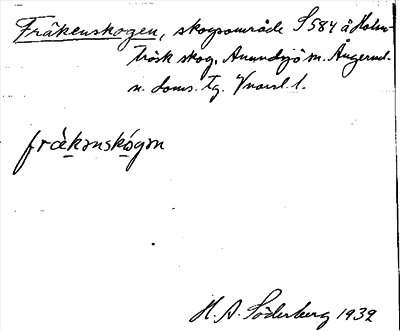 Fräkenskogen, skogsområde S 584 å Holm-
träsk skog, Anundsjö sn. Ångerml.
n. doms. tg. Vnorrl. l.
fràkənskógən
H. A. Söderberg 1939